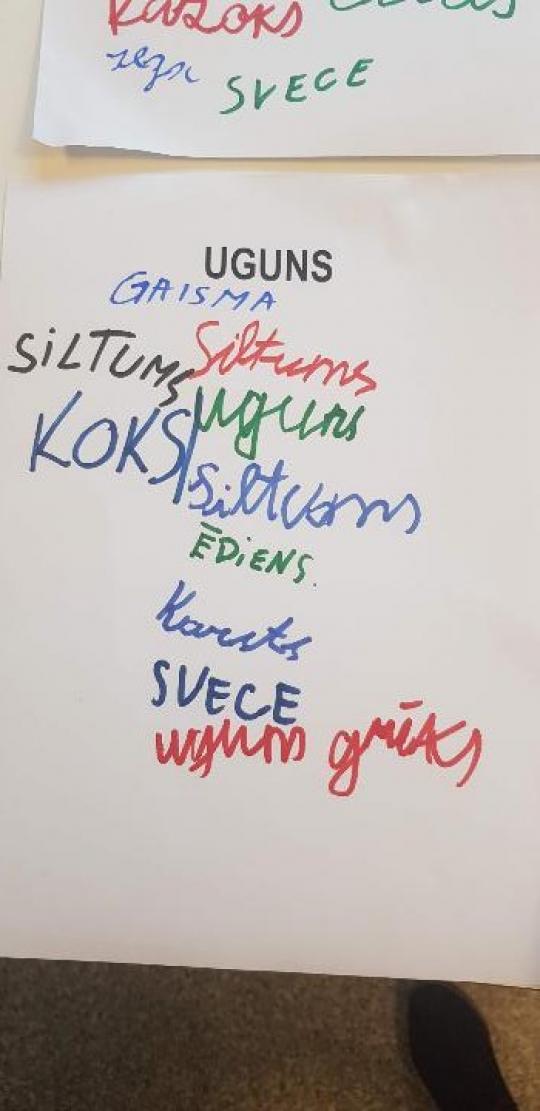 SVECE
UGUNS
GAISMA
SiLTUMS Siltums
KOKS uguns
Siltums
ĒDiENS.
Karsts
SVECE
uguns grēks